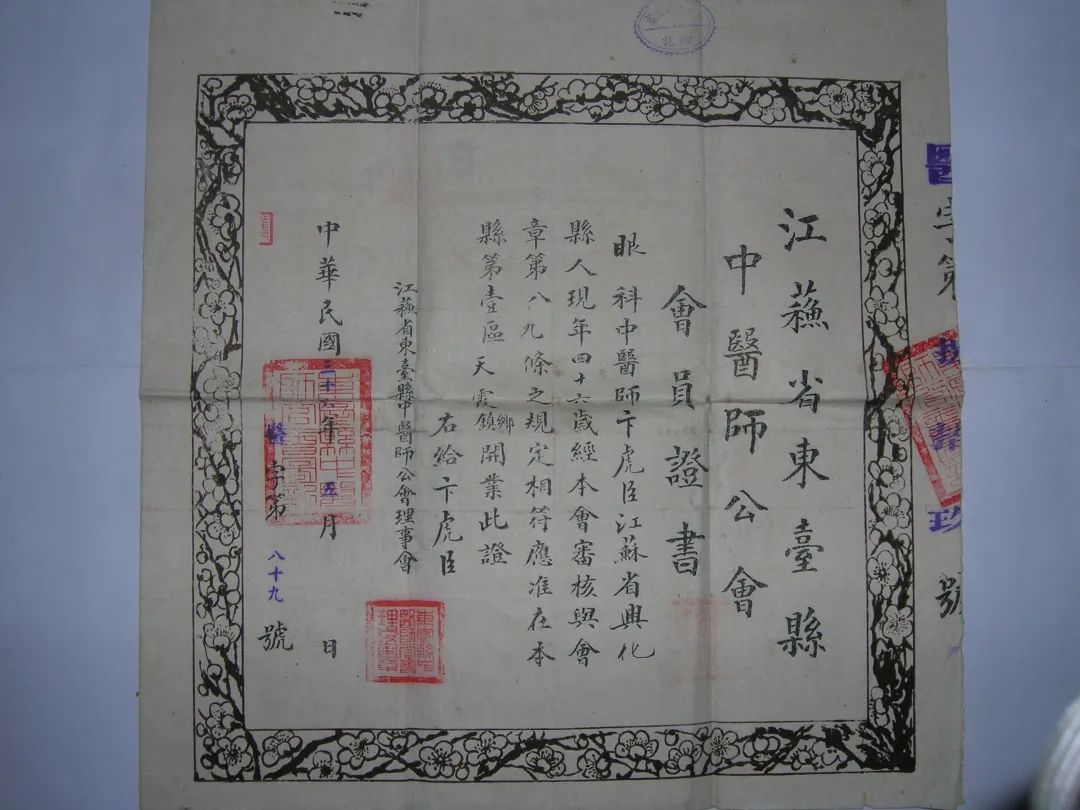 江蘓省東臺縣
中醫師公會
會員證書
眼科中醫師卞虎臣江蘇省興化
縣人現年四十六歲經本會審核與會
章第八九條之規定相符應准在本
縣第壹區天霞鄉鎮開業此證
右給卞虎臣
江蘓省東臺縣中醫師公會理事會
中華民國三十六年五月 日
醫字第八十九號
醫字第捌拾玖號